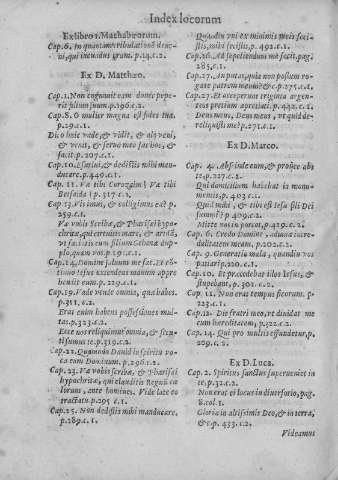 Index locorum
Ex libro 1. Machabæorum.
Cap. 6. In quantam tribulationē deue-
ni, qui iucundus eram. p. 14. c. 2.
Ex D. Matthæo.
Cap. 1. Non cognouit eam donec pepe-
rit filium suum. p. 196. c. 2.
Cap. 8. O mulier magna est fides tua.
p. 29. c. 1.
Dico huic vade, & vadit, & alij veni,
& venit, & seruo meo fac hoc, &
facit. p. 207. c. 1.
Cap. 10. Esuriui, & dedistis mihi man-
ducare. p. 440. c. 1.
Cap. 11. Væ tibi Corozaim; Væ tibi
Bethsaida! p. 517. c. 2.
Cap. 23. Vos
259. c. 1.
Væ vobis Scribæ, & Pharisæi hypo-
chritæ, qui circuitis mare, & aridā,
vt faciatis eum filium Gehenæ dup-
lo, quam vos. p. 259. c. 1.
Cap. 14. Domine saluum me fac. Et con-
tinuo Iesus extendens manum appre
hendit eum. p. 229. c. 1.
Cap. 19. Vade vende omnia, quæ habes.
p. 311. c. 2.
Erat enim habens possessiones mul-
tas. p. 323. c. 2.
Ecce nos reliquimus omnia, & secu-
ti sumus te. p. 319. c. 2.
Cap. 22. Quomodo Dauid in spiritu vo-
cat eum Dominum. p. 296. c. 2.
Cap. 23. Væ vobis scribæ, & Pharisæi
hypochritæ, qui clauditis Regnū cæ
lorum, ante homines. Vide late eo
tractatu p. 205. c. 1.
Cap. 25. Non dedistis mihi manducare.
p. 289. c. 1.
Quādiu vni ex minimis meis feci-
stis, mihi fecistis. p. 492. c. 1.
Cap. 26. Ad sepeliendum me facit. pag.
285. c. 1.
Cap. 27. An putas, quia non possum ro-
gare patrem meum? & c. p. 275. c. 1.
Cap. 27. Et acceperunt triginta argen-
teos pretium apretiati. p. 442. c. 1.
Deus meus, Deus meus, vt quid de-
reliquisti me? p. 271. c. 1.
Ex D. Marco.
Cap. 4.
te. p. 227. c. 2.
Qui domicilium habebat in monu-
mentis. p. 403. c. 1.
Quid mihi, & tibi est Iesu fili Dei
summi? p. 409. c. 2.
Mitte nos in porcos. p. 420. c. 2.
Cap. 6. Credo Domine, adiuua incre-
dulitatem meam. p. 202. c. 1.
Cap. 9. O generatio mala, quandiu vos
patiar? p. 220. c. 1.
Cap. 10. Et præcedebat illos Iesus, &
stupebant. p. 302. c. 2.
Cap. 11. Non erat tempus ficorum. p.
223. c. 1.
Cap. 12. Dic fratri meo, vt diuidat me
cum hæreditatem. p. 322. c. 2.
Cap. 14. Qui pro multis effundetur. p.
209. c. 2.
Ex D. Luca.
Cap. 2. Spiritus sanctus superueniet in
te. p. 32. c. 2.
Non erat ei locus in diuersorio. pag.
8. col. 1.
Gloria in altissimis Deo, & in terra,
& c. p. 433. c. 2.
Videamus